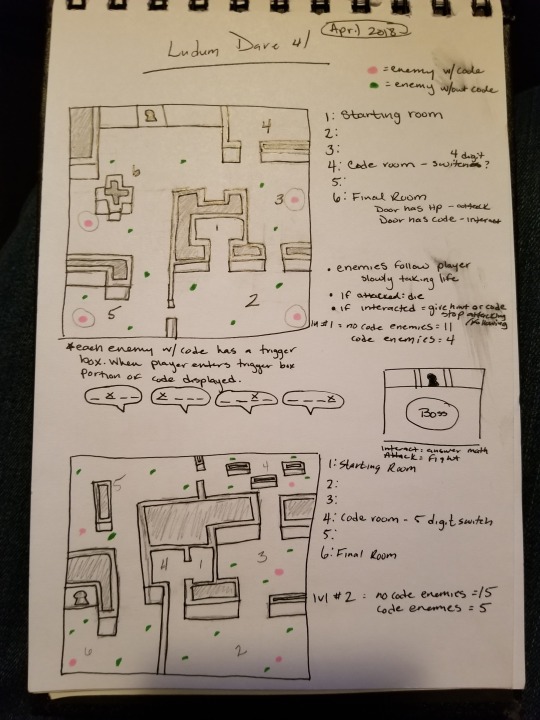 April 2018
Ludum Dare 41
= enemy w/ code
= enemy w/out code
1: Starting room
2:
3:
4: Code room - 4 digit switches?
5:
6: Final Room
Door has Hp - attack
Door has code - interact
4
6
3
1
5
2
• enemies follow player
slowly taking life
• if attacked: die
• if interacted = give hint or code
stop attacking
/following
lvl #1 = no code enemies = 11
code enemies = 4
*each enemy w/ code has a trigger
box. When player enters trigger box
portion of code displayed.
x _ _ _
_ x _ _
_ _ x _
_ _ _ x
Boss
Interact: answer math
Attack = Fight
1: Starting Room
2:
3:
4: Code room - 5 digit switch
5:
6: Final Room
5
4
4
1
3
6
2
lvl #2: no code enemies = 15
code enemies = 5